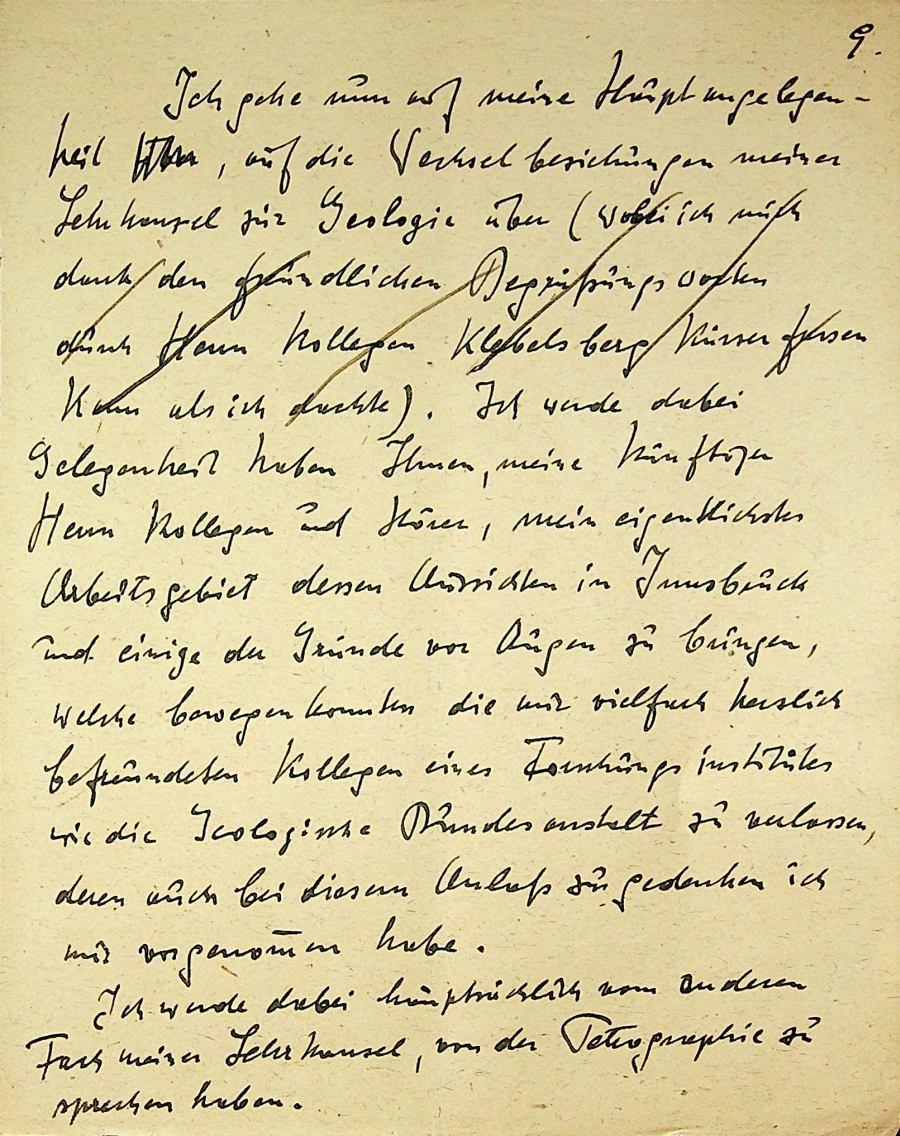 9.
Ich gehe nun auf meine Hauptangelegen-
heit , auf die Wechselbeziehungen meiner
Lehrkanzel zur Geologie über (wobei ich mich
dank den freundlichen Begrüßungsworten
durch Herrn Kollegen Klebelsberg kürzer fassen
kann als ich dachte). Ich werde dabei
Gelegenheit haben Ihnen, meine künftigen
Herrn Kollegen und Hörer, mein eigentlichstes
Arbeitsgebiet dessen Aussichten in Innsbruck
und einige der Gründe vor Augen zu bringen,
welche bewegen konnten die mir vielfach herzlich
befreundeten Kollegen eines Forschungsinstitutes
wie die Geologische Bundesanstalt zu verlassen,
deren auch bei diesem Anlaß zu gedenken ich
mir vorgenommen habe.
Ich werde dabei hauptsächlich vom anderen
Fach meiner Lehrkanzel, von der Petrographie zu
sprechen haben.